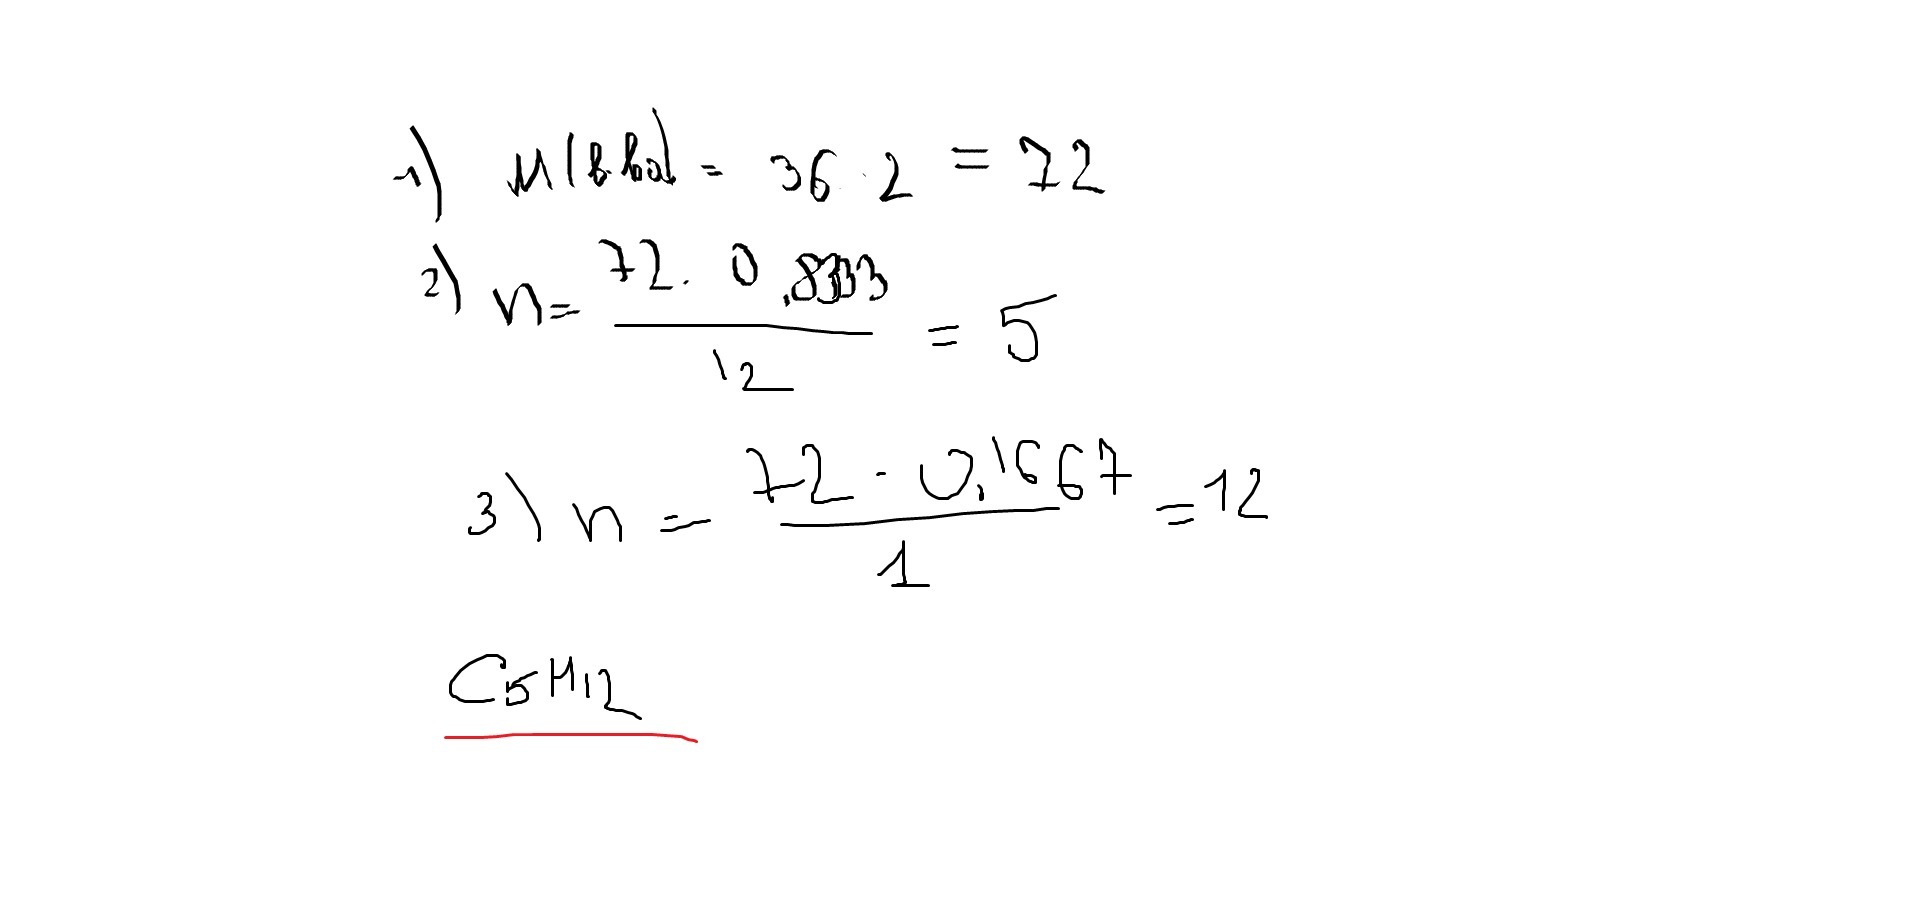 1) M(в-ва) = 36 · 2 = 72
2) n = 72 · 0,8333 / 12 = 5
3) n = 72 · 0,1667 / 1 = 12
C5H12